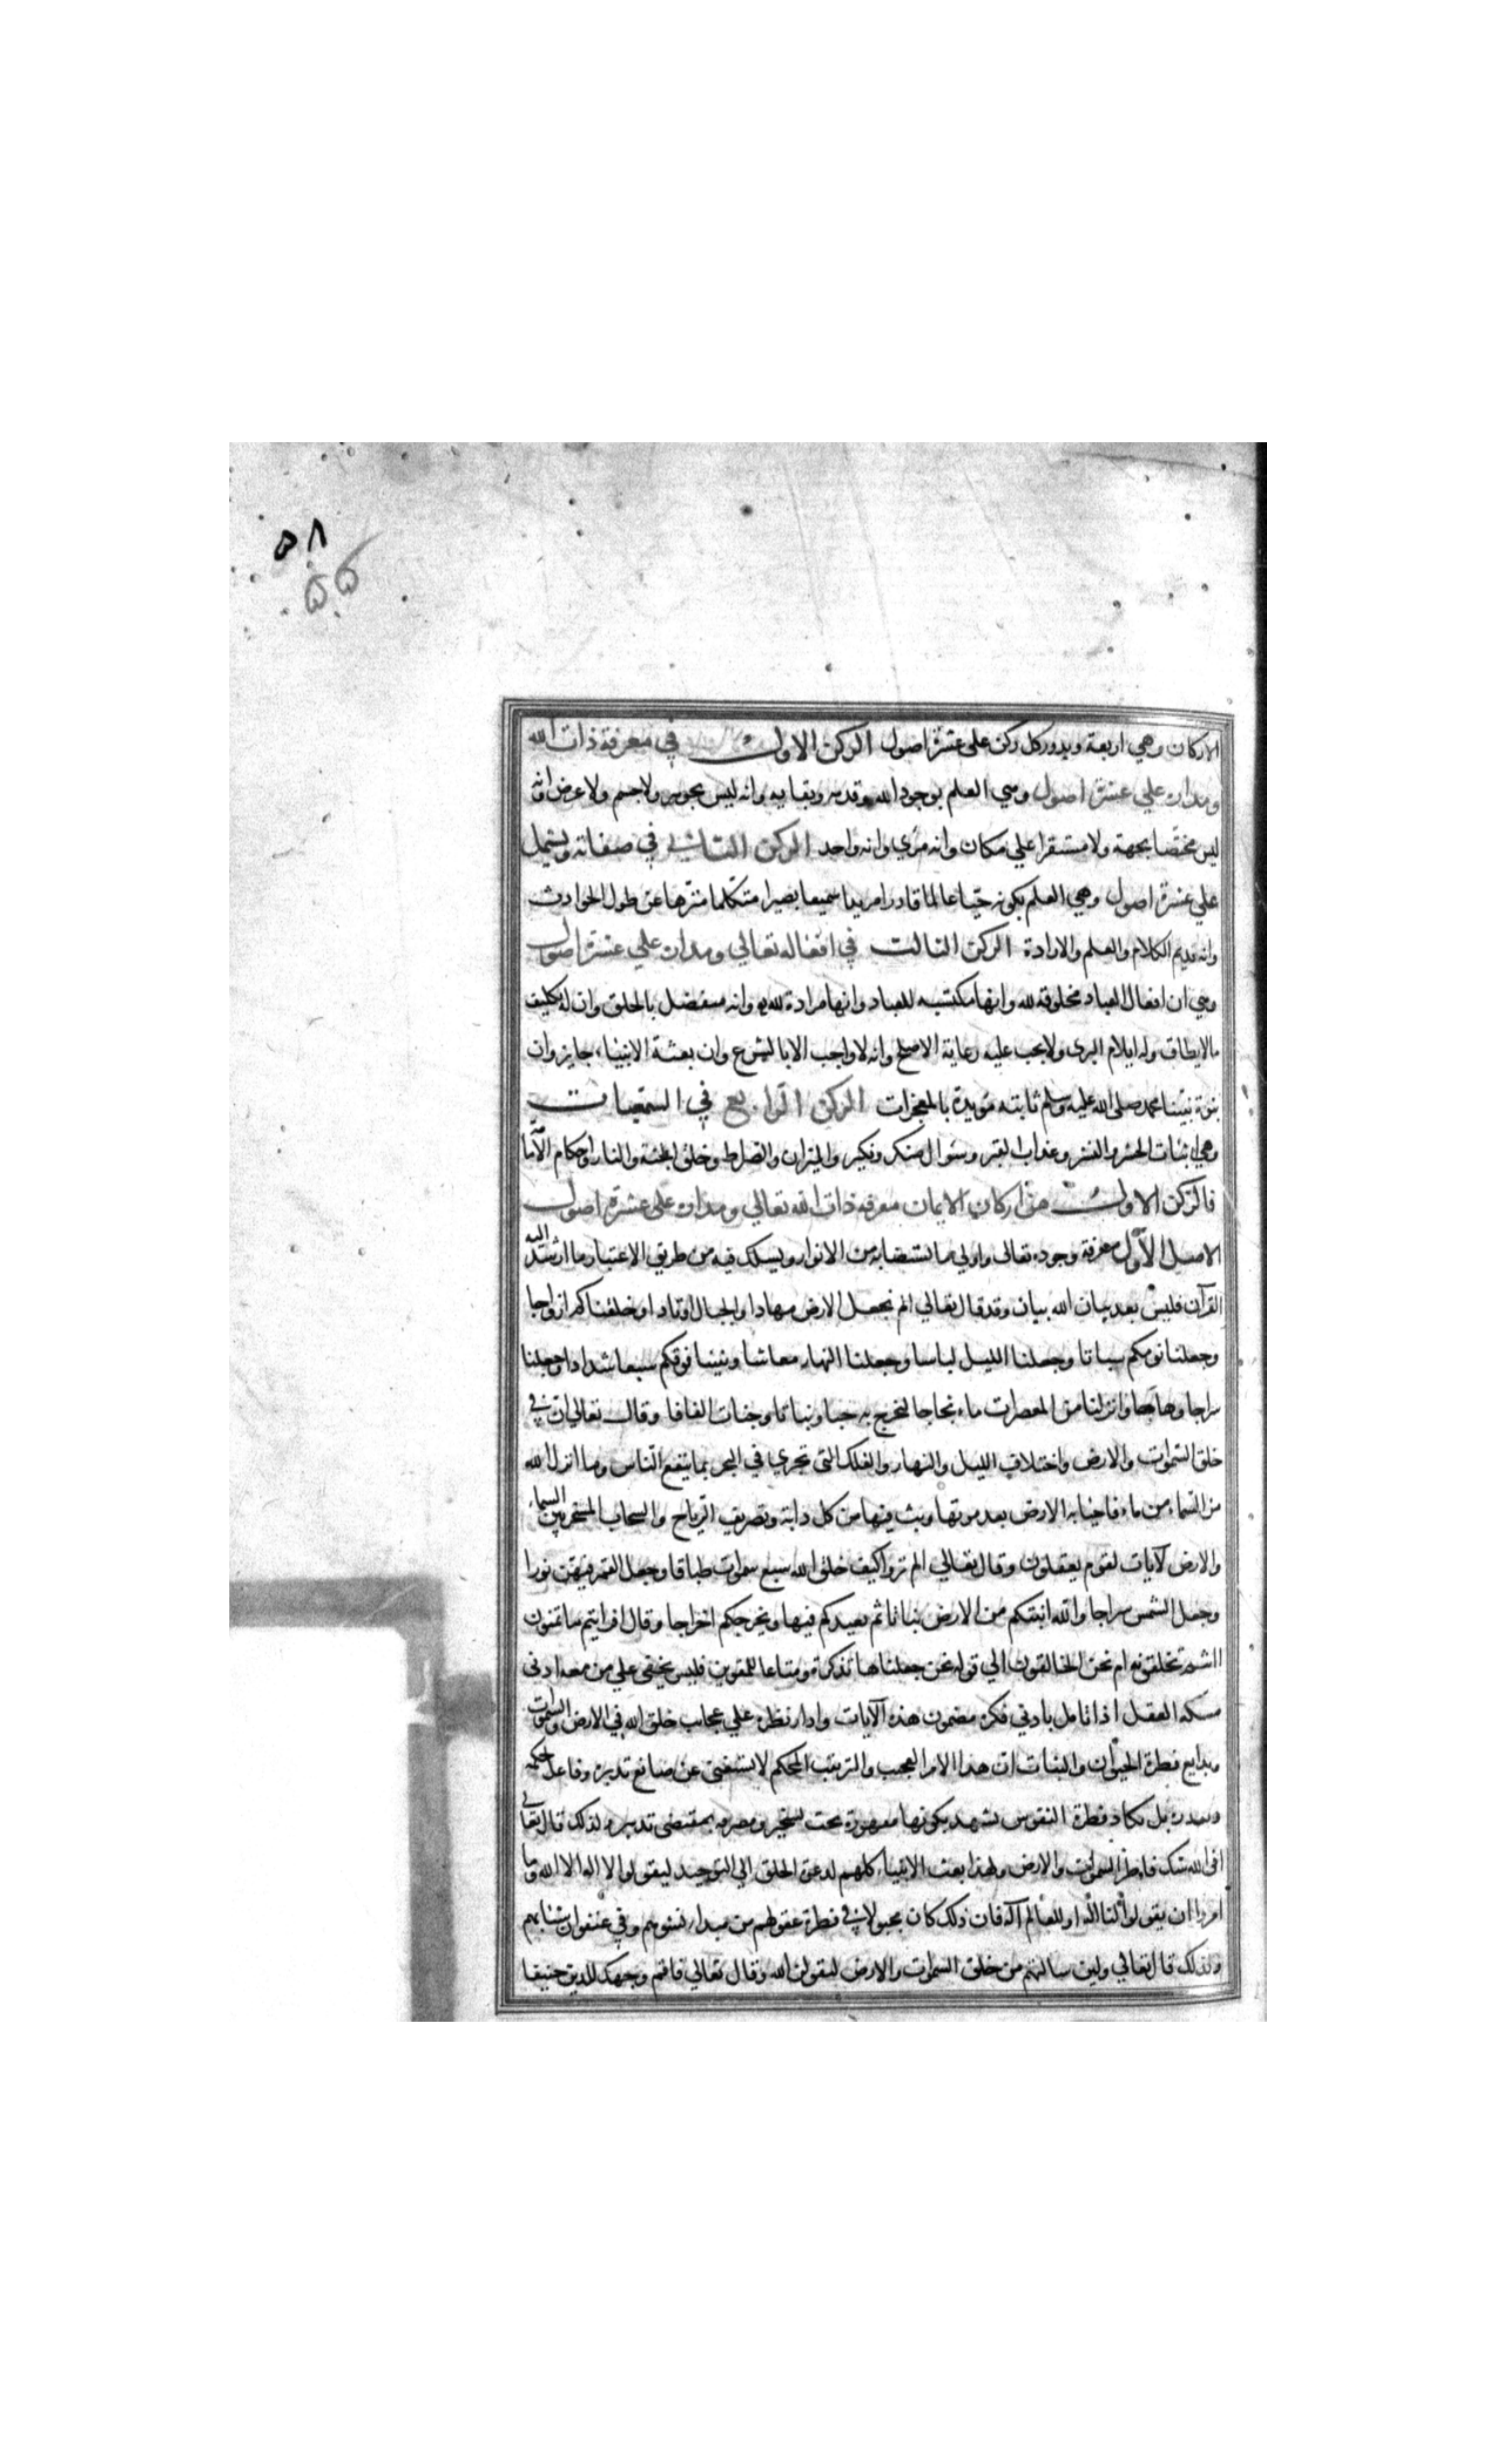 ٥٨
٥٥
الاركان وهي اربعة ويدور كل ركن على عشرة اصول الركن الاول في معرفة ذات الله
ومداره علي عشرة اصول وهي العلم بوجود الله وقدمه وبقايه وانه ليس بجوهر ولا جسم ولا عرض وانه
ليس مختصا بجهة ولا مستقرا علي مكان وانه مرئي وانه واحد الركن الثاني في صفاته ويشتمل
علي عشرة اصول وهي العلم بكونه حيا عالما قادرا مريدا سميعا بصيرا متكلما منزها عن حلول الحوادث
وانه قديم الكلام والعلم والارادة الركن الثالث في افعاله تعالي ومداره علي عشرة اصول
وهي ان افعال العباد مخلوقة لله وانها مكتسبه للعباد وانها مرادة لله وانه متفضل بالخلق وان له تكليف
مالايطاق وله ايلام البرى ولا يجب عليه رعاية الاصلح وانه لا واجب الا بالشرع وان بعثة الانبياء جايز وان
نبوة نبينا محمد صلى الله عليه وسلم ثابته مؤيدة بالمعجزات الركن الرابع في السمعيات
وهي اثبات الحشر والنشر وعذاب القبر وسؤال منكر ونكير والميزان والصراط وخلق الجنة والنار واحكام الامامة
فالركن الاول من اركان الايمان معرفة ذات الله تعالي ومداره على عشرة اصول
الاصل الاول معرفة وجوده تعالى واولي ما يستضابه من الانوار ويسلك فيه من طريق الاعتبار ما ارشد اليه
القرآن فليس بعد بيان الله بيان وقد قال تعالي الم نجعل الارض مهادا والجبال اوتادا وخلقناكم ازواجا
وجعلنا نومكم سباتا وجعلنا الليل لباسا وجعلنا النهار معاشا وبنينا فوقكم سبعا شدادا وجعلنا
سراجا وهاجا وانزلنا من المعصرات ماء ثجاجا لنخرج به حبا ونباتا وجنات الفافا وقال تعالي ان في
خلق السموات والارض واختلاف الليل والنهار والفلك التي تجري في البحر بما ينفع الناس وما انزل الله
من السماء من ماء فاحيا به الارض بعد موتها وبث فيها من كل دابة وتصريف الرياح والسحاب المسخر بين السماء
والارض لآيات لقوم يعقلون وقال تعالي الم تروا كيف خلق الله سبع سموات طباقا وجعل القمر فيهن نورا
وجعل الشمس سراجا والله انبتكم من الارض نباتا ثم يعيدكم فيها ويخرجكم اخراجا وقال افرايتم ما تمنون
اانتم تخلقونه ام نحن الخالقون الي قوله نحن جعلناها تذكرة ومتاعا للمقوين فليس يخفى علي من معه ادنى
مسكه العقل اذا تامل بادني فكرة مضمون هذه الآيات وادار نظره علي عجايب خلق الله في الارض والسموات
وبدايع فطرة الحيوان والنبات ان هذا الامر العجيب والترتيب المحكم لا يستغنى عن صانع تدبره وفاعل يحكمه
ويقدره بل تكاد فطرة النفوس تشهد بكونها مقهورة تحت تسخيره ومصرفه بمقتضى تدبيره ولذلك قال تعالي
افي الله شك فاطر السموات والارض ولهذا بعث الانبياء كلهم لدعوة الخلق الي التوحيد ليقولوا لا اله الا الله وما
امروا ان يقولوا لنا اله او للعالم اله فان ذلك كان مجبولا في فطرة عقولهم من مبدا نشوهم وفي عنفوان شبابهم
ولذلك قال تعالي ولين سالتهم من خلق السموات والارض ليقولن الله وقال تعالي فاقم وجهك للدين حنيفا